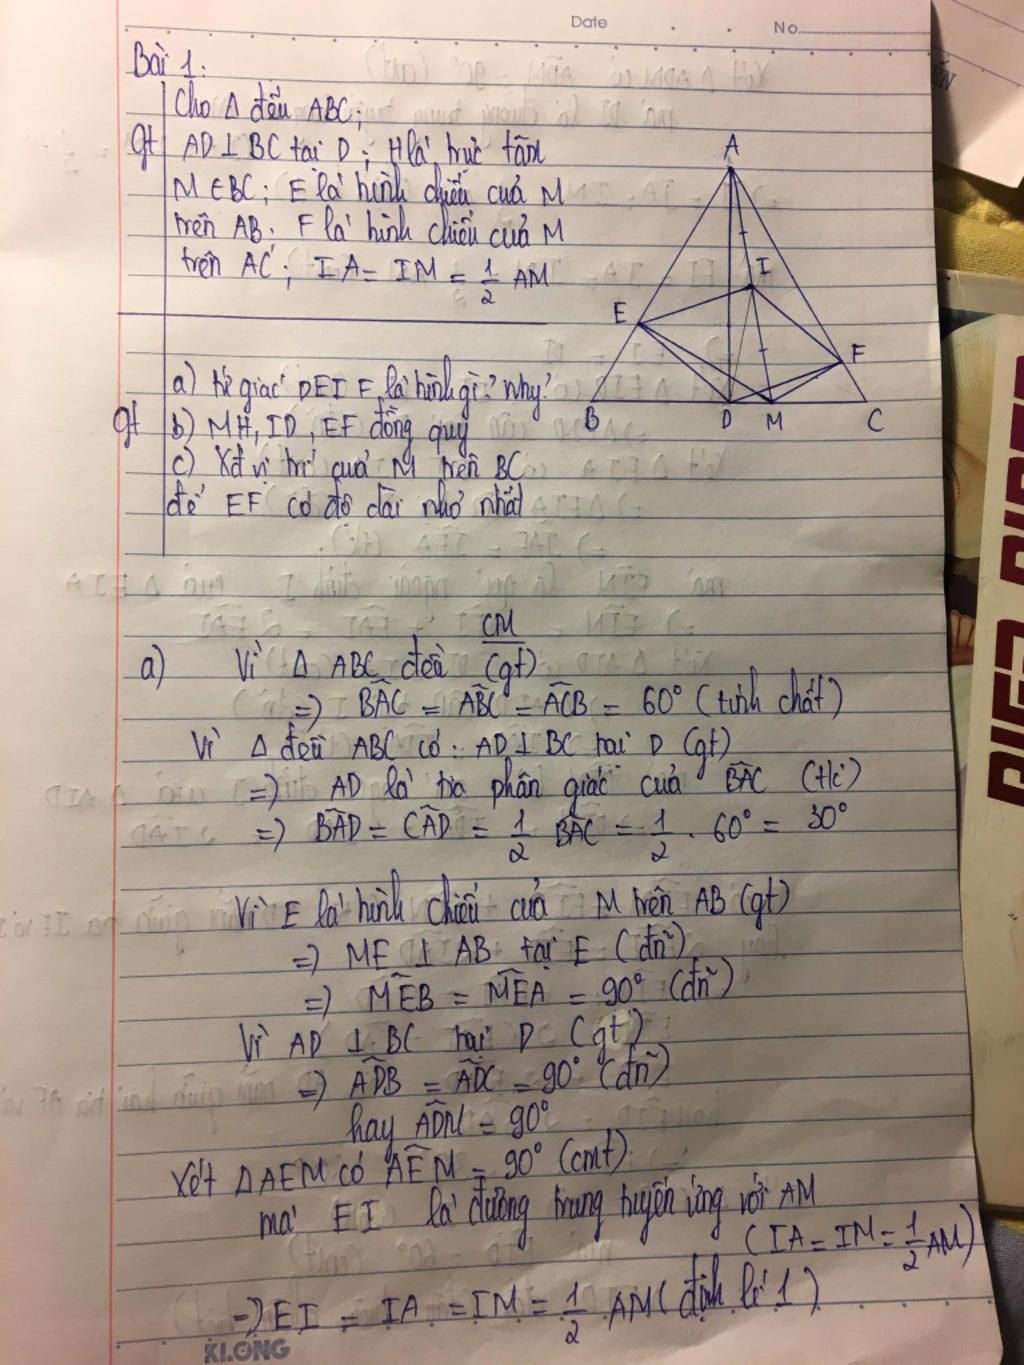 Date
No.
Bài 1:
Cho Δ đều ABC;
gt
AD ⊥ BC tại D; H là trực tâm
M ∈ BC; E là hình chiếu của M
trên AB. F là hình chiếu của M
trên AC; IA = IM = 1/2 AM
A
I
E
F
B
D
M
C
a) tứ giác DEIF là hình gì? why?
gt
b) MH, ID, EF đồng quy
c) Xđ vị trí của M trên BC
để EF có độ dài nhỏ nhất
CM
a) Vì Δ ABC đều (gt)
=> BAC = ABC = ACB = 60° (tính chất)
Vì Δ đều ABC có: AD ⊥ BC tại D (gt)
=> AD là tia phân giác của BAC (tc)
=> BAD = CAD = 1/2 BAC = 1/2 . 60° = 30°
Vì E là hình chiếu của M trên AB (gt)
=> ME ⊥ AB tại E (đn)
=> MEB = MEA = 90° (đn)
Vì AD ⊥ BC tại D (gt)
=> ADB = ADC = 90° (đn)
hay ADM = 90°
Xét ΔAEM có AEM = 90° (cmt)
mà EI là đường trung tuyến ứng với AM
(IA = IM = 1/2 AM)
=> EI = IA = IM = 1/2 AM (định lí 1)
KLONG